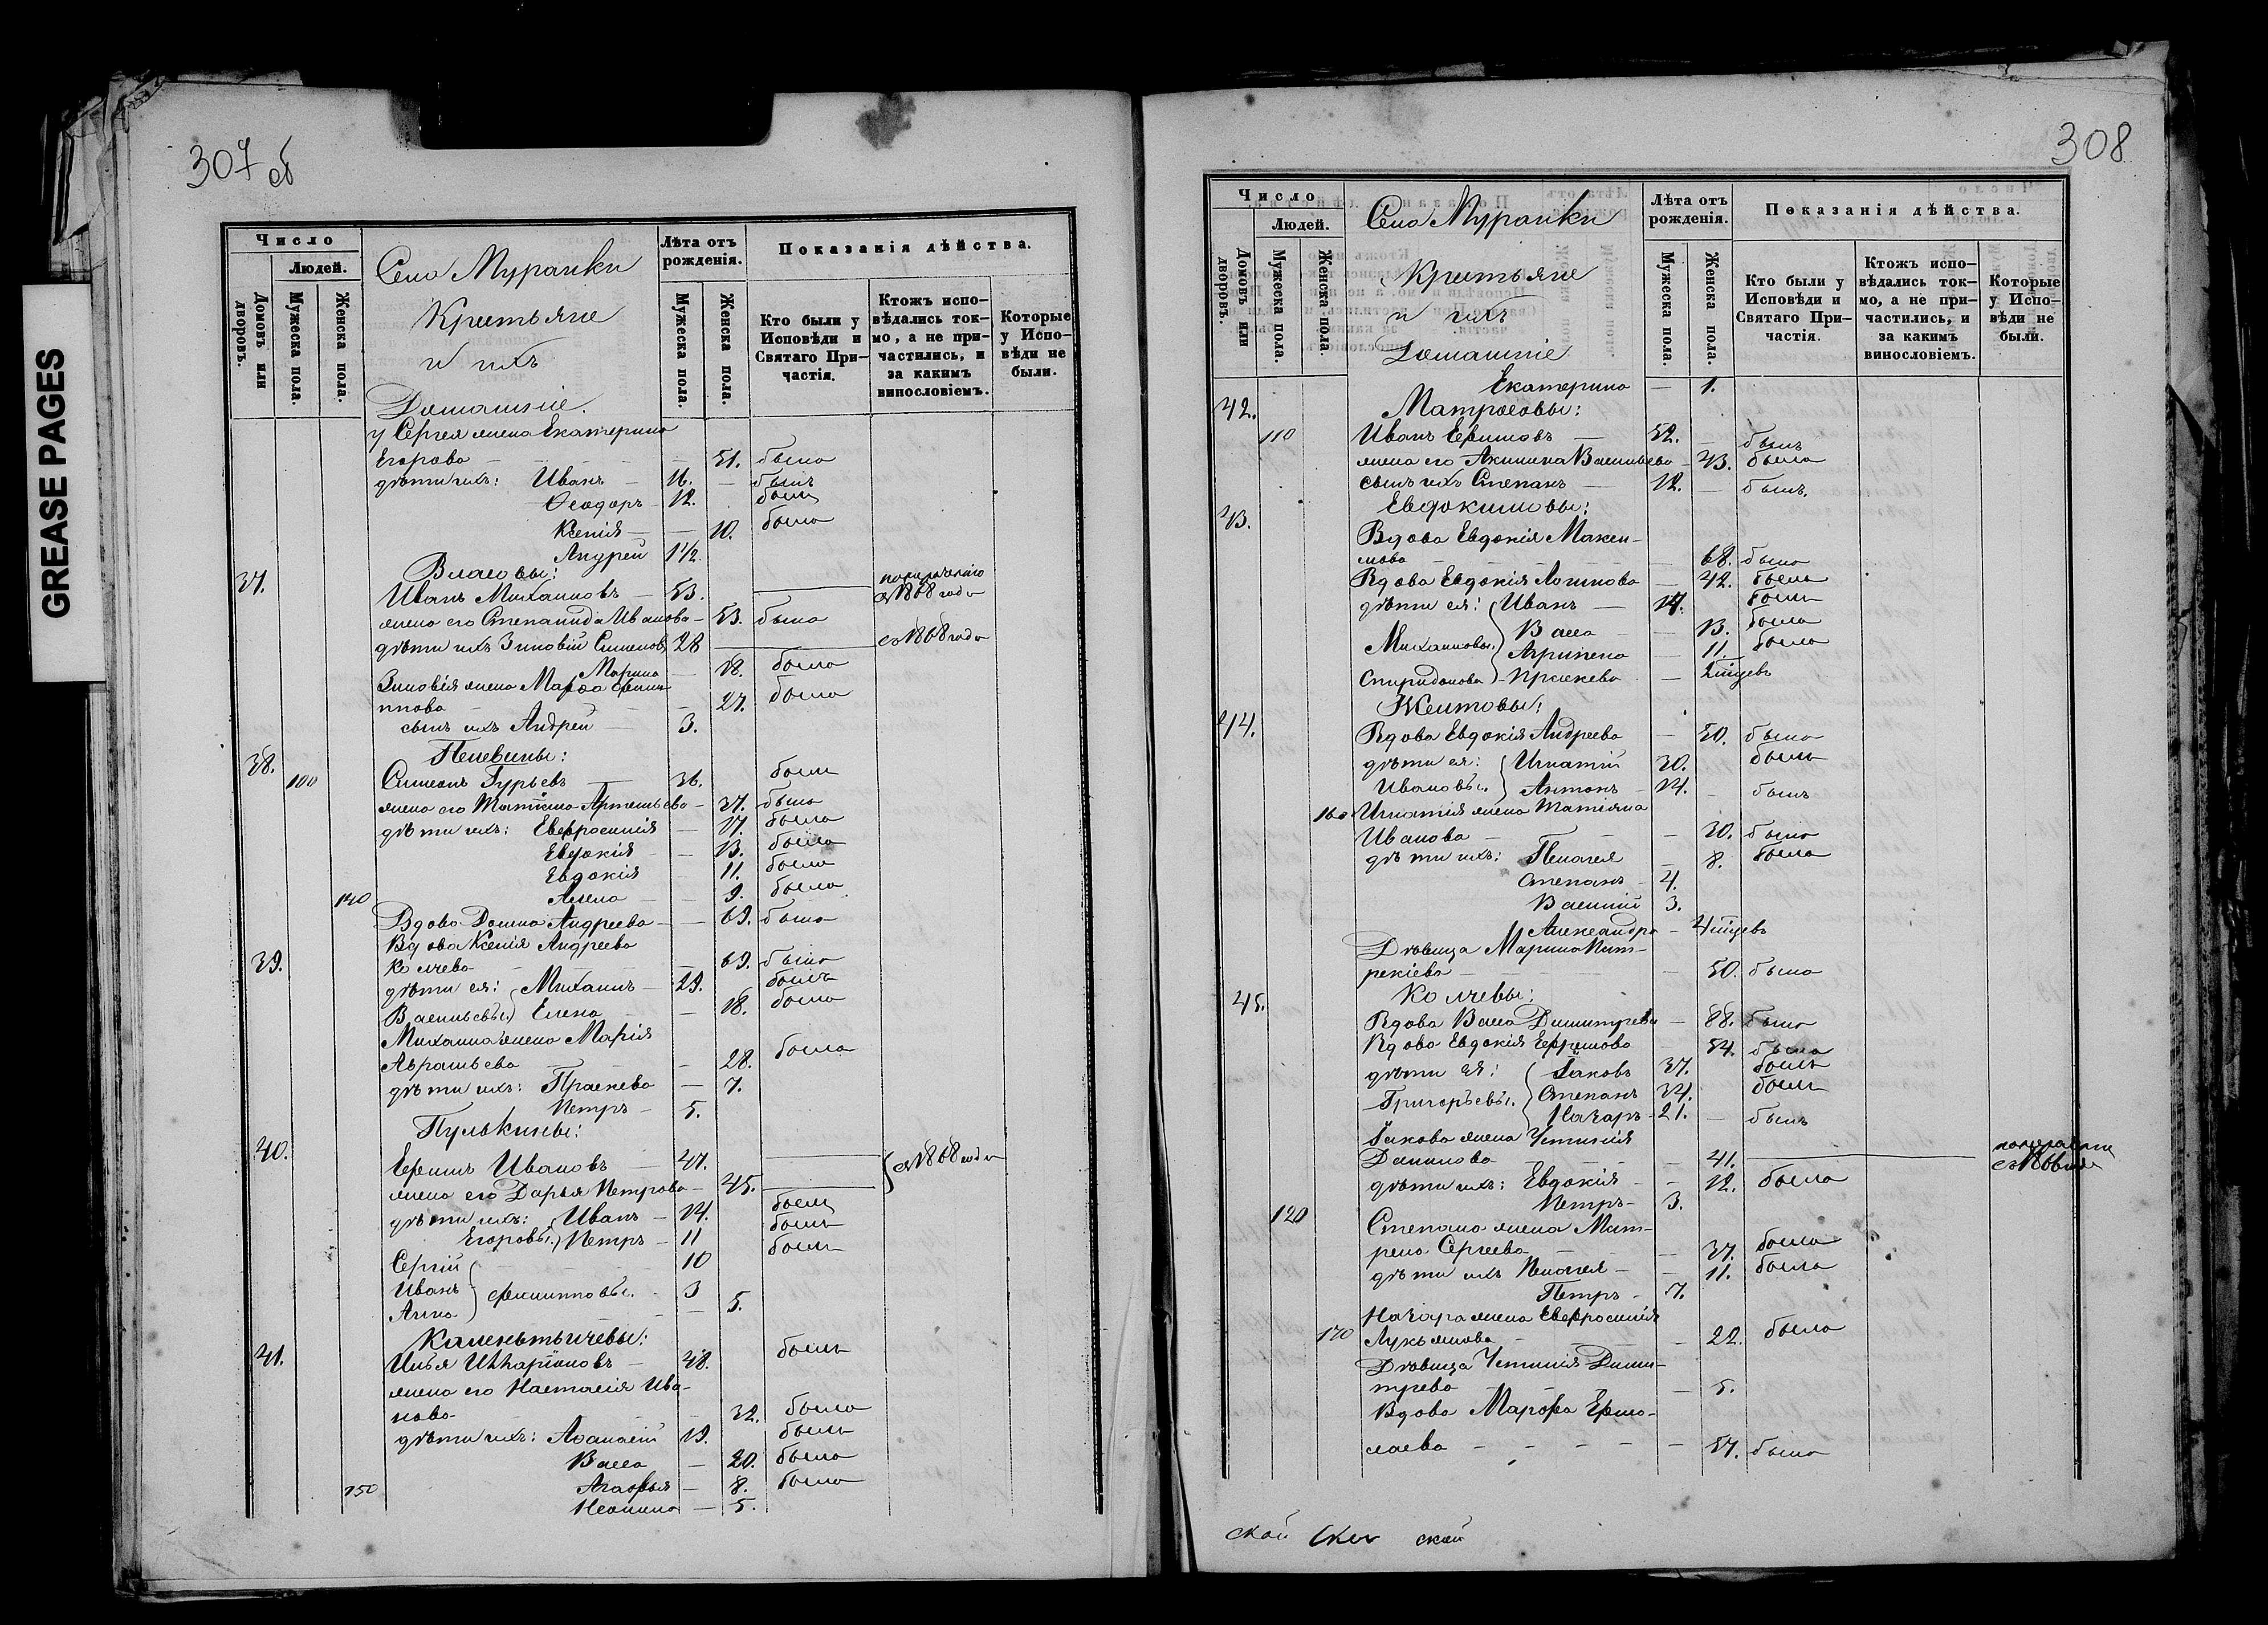 GREASE PAGES
307 об
Число
Людей.
Домовъ или дворовъ.
Мужеска пола.
Женска пола.
Село Муранки
Крестьяне
и ихъ
Домашніе.
Лѣта отъ рожденія.
Мужеска пола.
Женска пола.
Показанія дѣйства.
Кто были у Исповѣди и Святаго Причастія.
Ктожъ исповѣдались токмо, а не причастились, и за какимъ винословіемъ.
Которые у Исповѣди не были.
у Сергея жена Екатерина
Егорова — 51. была
дѣти ихъ: Иванъ — 16. — былъ
Ѳеодоръ — 12. были
Ксенія — — 10. была
Андрей 1 1/2.
Власовы:
37. Иванъ Михаиловъ — 53. — съ 1868 года
жена его Степанида Иванова — 53. была
дѣти ихъ Зиновій Симеоновъ 28 — съ 1868 года
Марина — 18. была
Зиновія жена Марѳа Филип-
пова — — 27. была
сынъ ихъ Андрей — 3.
Пелевины:
38. 100 Симеонъ Гурьевъ — 36. были
жена его Татіана Артемьева — 37. была
дѣти ихъ: Евфросинія — 17. была
Евдокія — 13. была
Евдокія — 11. была
140 Анна — 9. была
Вдова Домна Андреева — — 69. была
Вдова Ксенія Андреева
39. Колчева — — 69. была
дѣти ея: Михаилъ — 29. былъ
Васильевы. Елена — 18. была
Михаила жена Марія
Аврамьева — — 28. была
дѣти ихъ: Праскева — 7.
Петръ — 5.
Пулькины:
40. Ефимъ Ивановъ — 47. — съ 1868 года
жена его Дарья Петрова — 45. —
дѣти ихъ: Иванъ — 14. были
Егоровы. Петръ — 11 были
Сергій — — — 10 были
Иванъ Филипповы. — 3
Анна — — 5.
Каленьтьичевы:
41. Илья Илларіоновъ — 48. были
жена его Настасія Ива-
нова — 32. была
дѣти ихъ: Аѳанасій 19. были
Васса — 20. была
150 Агафья — 8. была
Неонила — 5.
308
Число
Людей.
Домовъ или дворовъ.
Мужеска пола.
Женска пола.
Село Муранки
Крестьяне
и ихъ
Домашніе
Лѣта отъ рожденія.
Мужеска пола.
Женска пола.
Показанія дѣйства.
Кто были у Исповѣди и Святаго Причастія.
Ктожъ исповѣдались токмо, а не причастились, и за какимъ винословіемъ.
Которые у Исповѣди не были.
Екатерина — 1.
42. Матросовы:
110 Иванъ Ефимовъ — 52. — былъ
жена его Акилина Васильева — 43. была
сынъ ихъ Степанъ — 12. — былъ.
43. Евдокимовы:
Вдова Евдокія Макси-
мова — — 68. была
Вдова Евдокія Логинова — 42. была
дѣти ея: Иванъ — 17. были
Васса — 13. была
Михаиловы. Агрипена — 11. была
Спиридонова — Праскева — 2 мѣсяцевъ
Желтовы:
44. Вдова Евдокія Андреева — 50. была
дѣти ея: Игнатій 30. были
Ивановы. Антонъ — 14. — былъ
160 Игнатія жена Татіана
Иванова — — 30. была
дѣти ихъ: Пелагея — 8. была
Степанъ — 4.
Василій 3.
Александра — 4 мѣсяцевъ
Дѣвица Марина Пат-
рекіева — — 50. была
Колчевы:
45. Вдова Васса Димитрева — 88. была
Вдова Евдокія Ефремова — 54. была
дѣти ея: Іаковъ 37. были
Григорьевы. Степанъ 34. были
Назаръ — 21. — былъ
Іакова жена Устинія
Данилова — — 41. — съ 1866 года
дѣти ихъ: Евдокія — — 12. была
Петръ — 3.
120 Степана жена Мат-
рена Сергеева — — 37. была
дѣти ихъ Пелагея — — 11. была
Петръ — 7.
Назара жена Евфросинія
170 Лукьянова — — 22. была
Дѣвица Устинія Дими-
трева — — 5.
Вдова Марѳа Ермо-
лаева — — — — — 57. была
ской ской